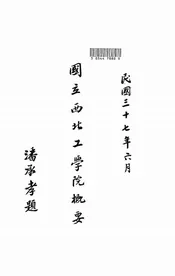 民國三十七年六月
國立西北工學院概要
潘承孝題